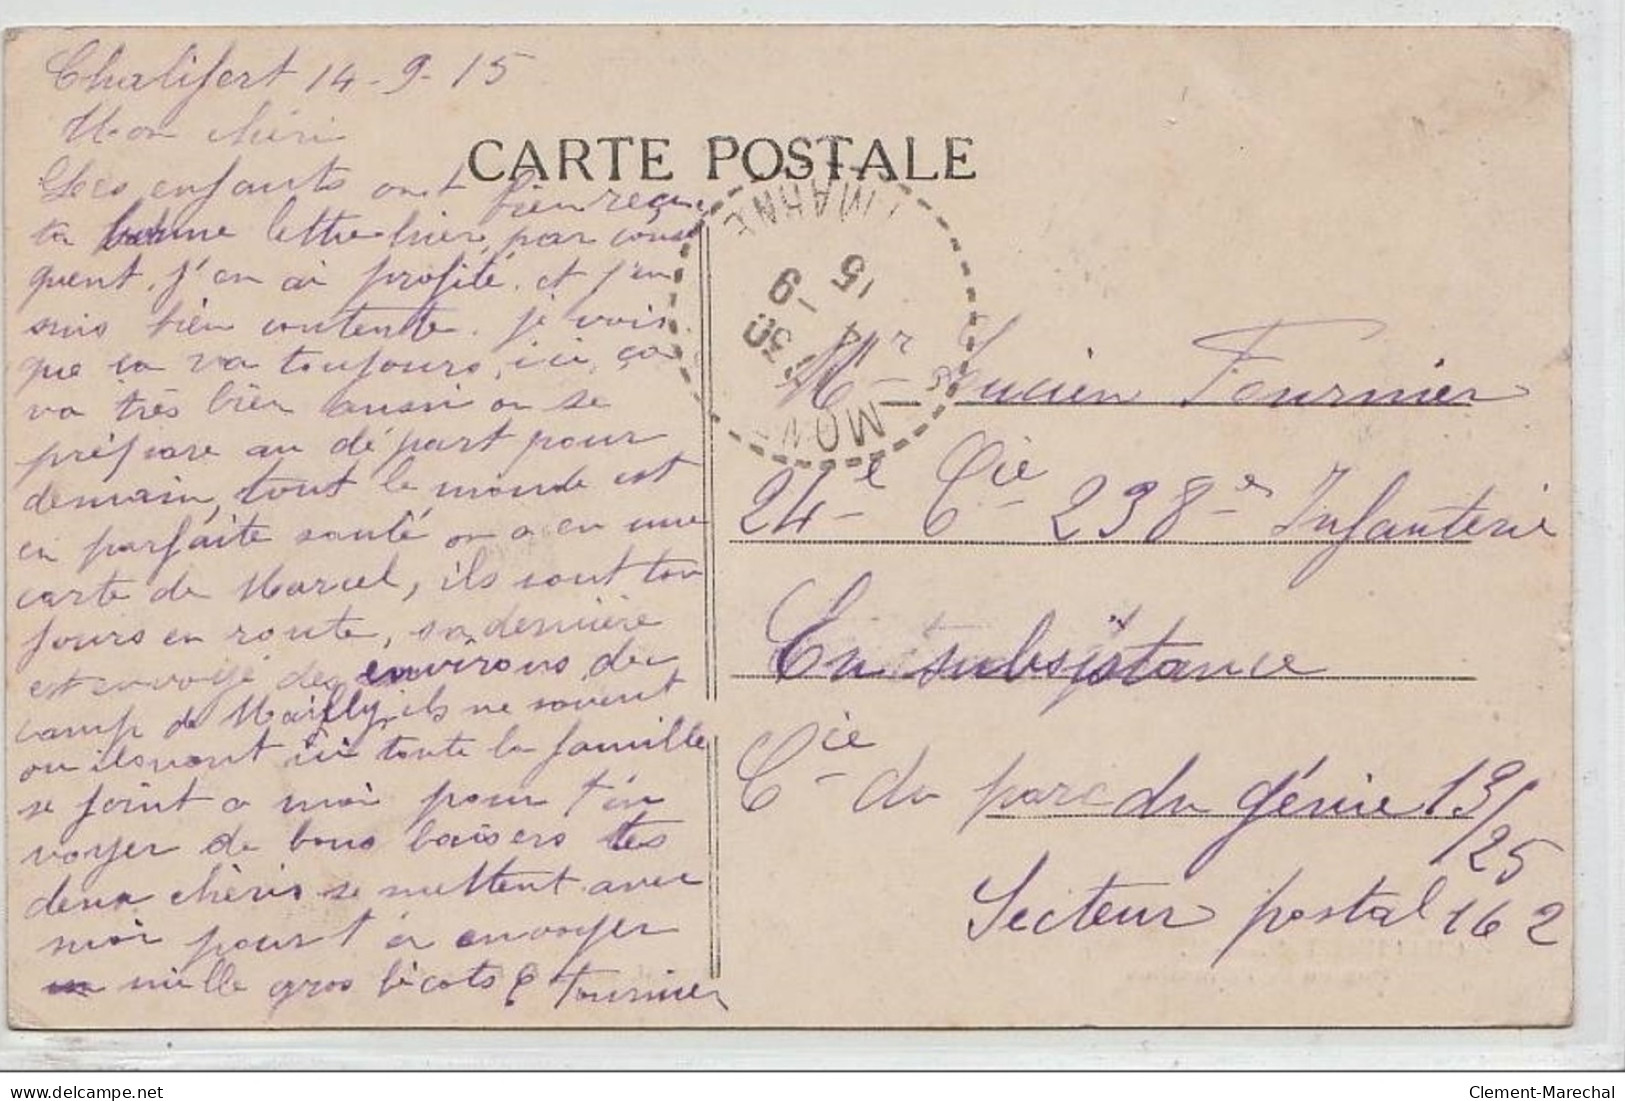 Chalifert 14-9-15
Mon chéri
Les enfants ont bien reçu
ta bonne lettre hier, par consé
quent j'en ai profité. et j'en
suis bien contente. je vois
que ça va toujours, ici, ça
va très bien aussi on se
prépare au départ pour
demain, tout le monde est
en parfaite santé on a eu une
carte de Marcel, ils sont tou
jours en route, sa dernière
est envoyé des environs du
camp de Mailly, ils ne savent
ou ils vont ici toute la famille
se joint a moi pour t'en
voyer de bons baisers tes
deux chéris se mettent avec
moi pour t'en envoyer
mille gros bécots E Fournier
CARTE POSTALE
MARNE
15
-9
14
30
MON
Mr Lucien Fournier
24e Cie 238e Infanterie
En subsistance
Cie du parc du génie 13/25
Secteur postal 162
delcampe.net
Clement-Marechal